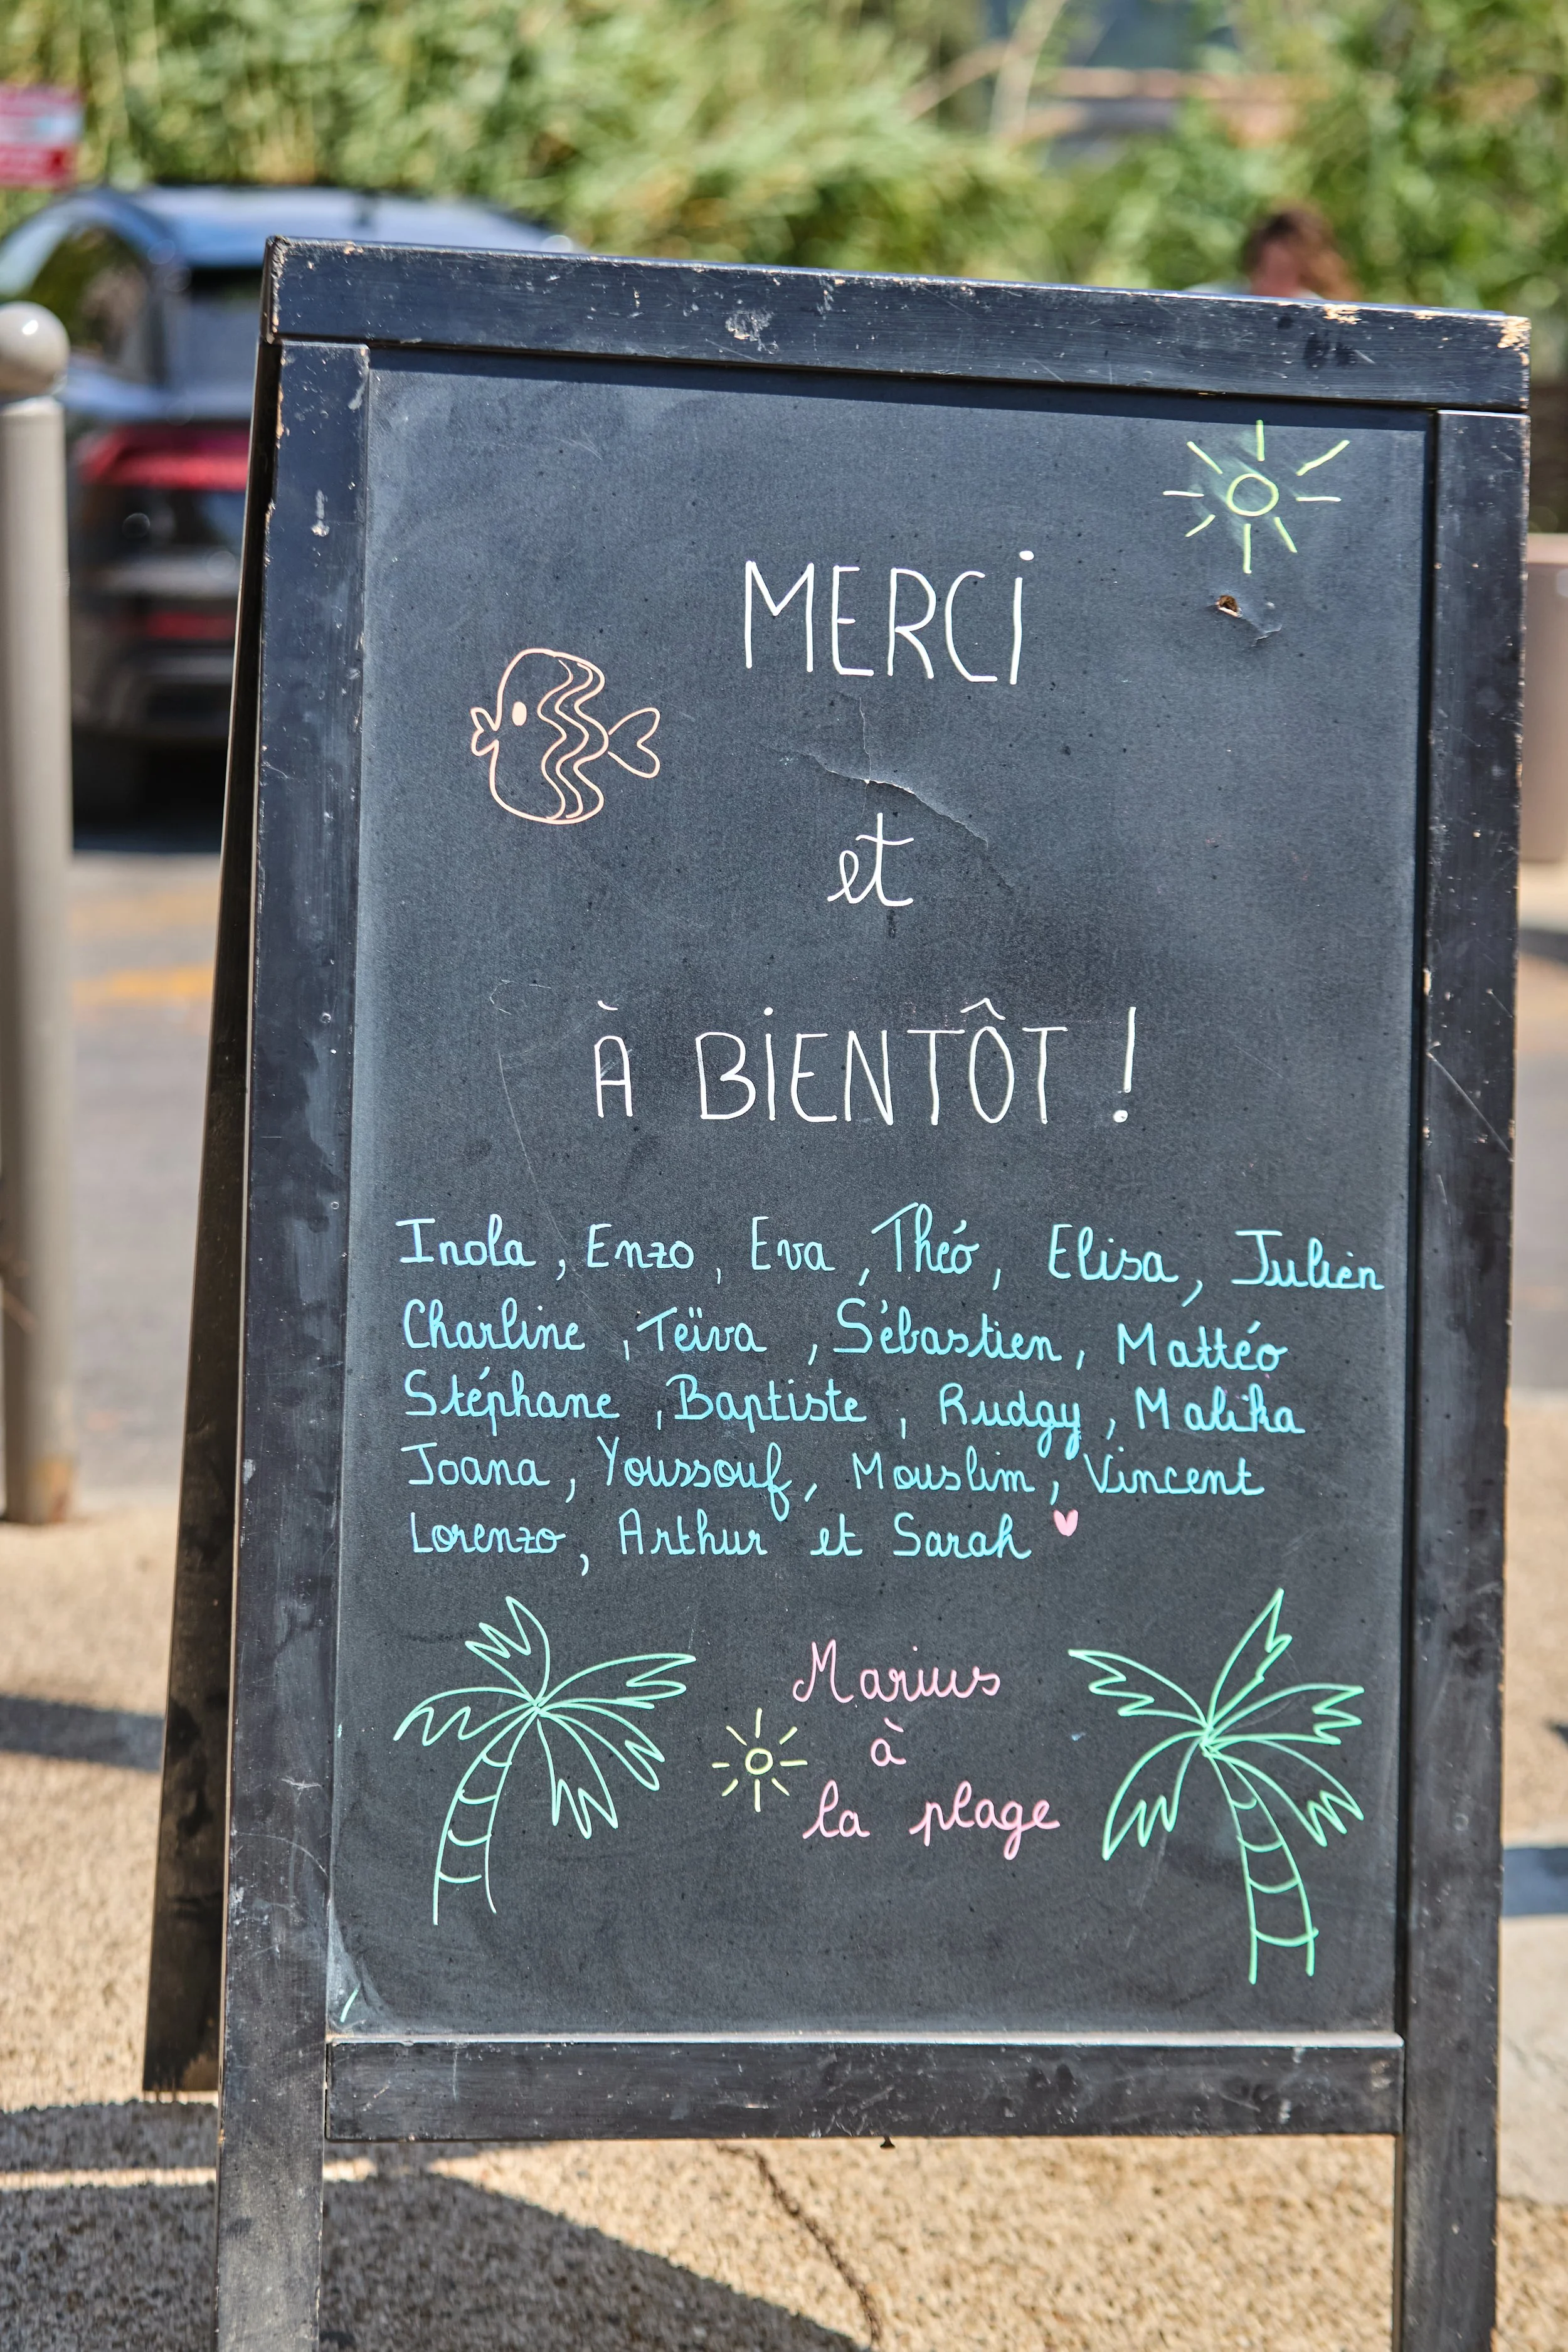 MERCI
et
À BIENTÔT !
Inola, Enzo, Eva, Théó, Elisa, Julien
Charline, Teïva, Sébastien, Mattéo
Stéphane, Baptiste, Rudgy, Malika
Joana, Youssouf, Mouslim, Vincent
Lorenzo, Arthur et Sarah
Marius
à
la plage